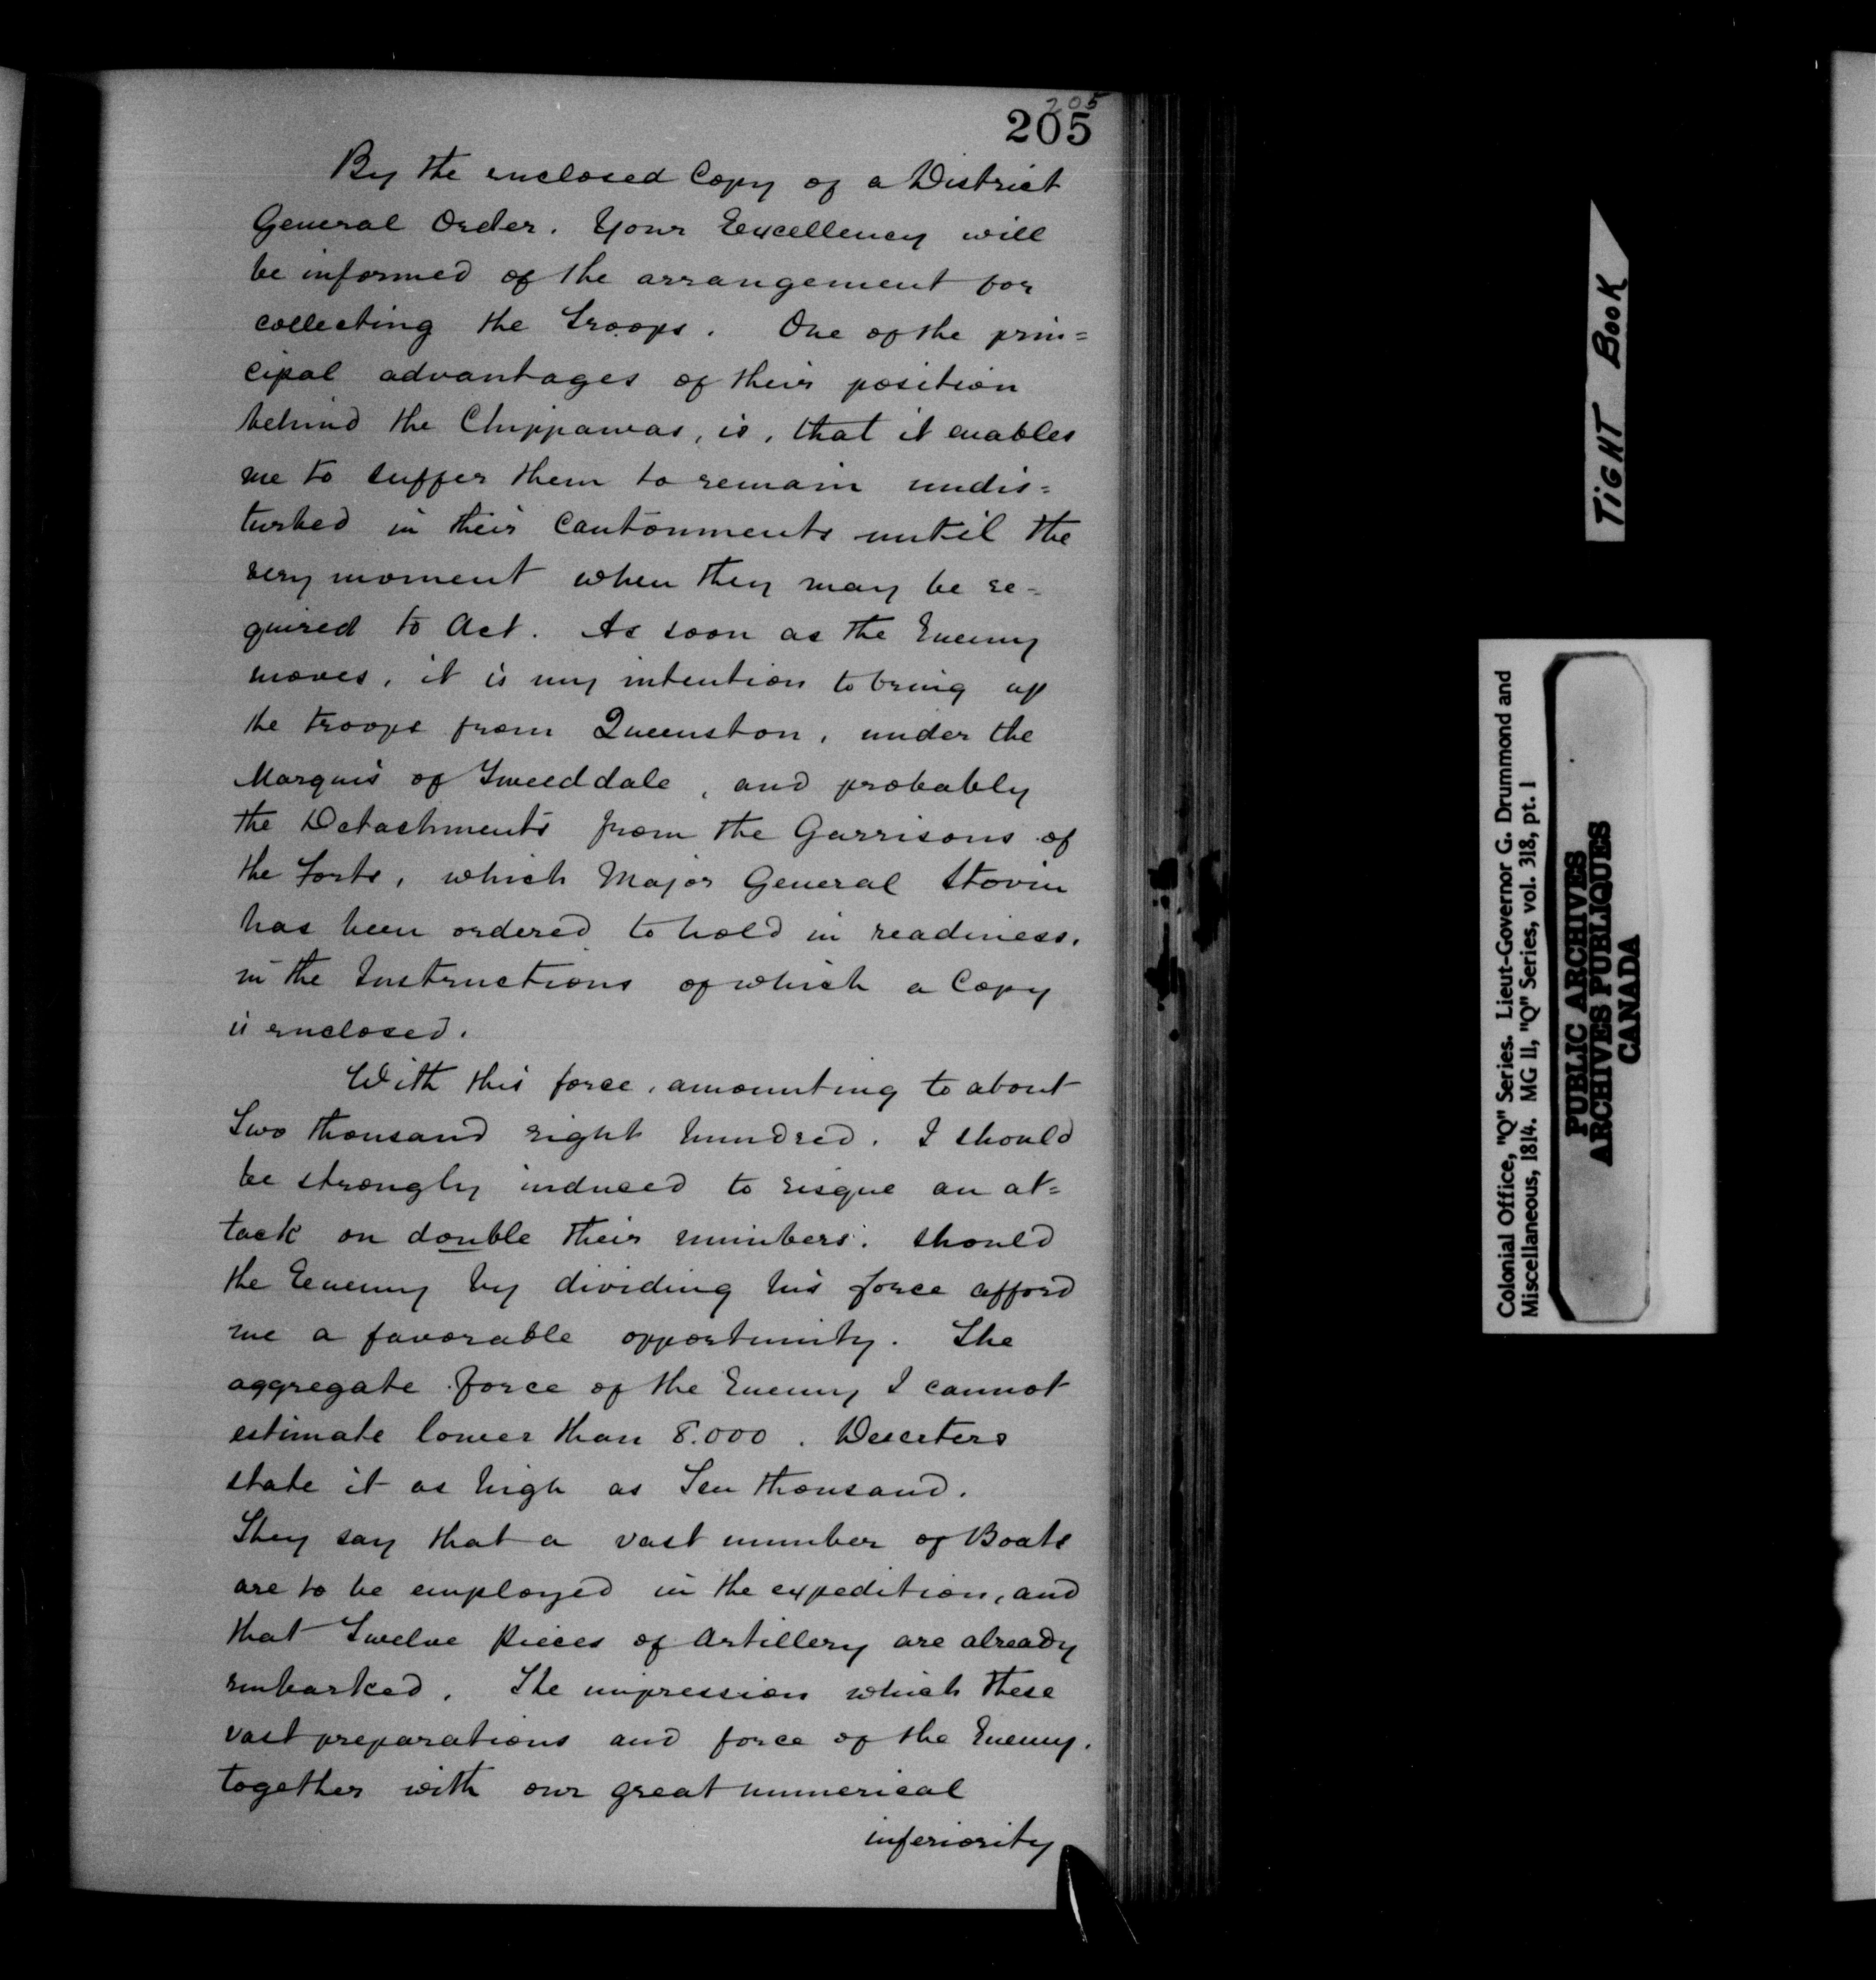 205
205
By the enclosed Copy of a District
General Order. Your Excellency will
be informed of the arrangement for
collecting the Troops. One of the prin=
cipal advantages of their position
behind the Chippawas, is, that it enables
me to suffer them to remain undis=
turbed in their Cantonments until the
very moment when they may be re-
quired to Act. As soon as the Enemy
moves, it is my intention to bring up
the troops from Queenston, under the
Marquis of Tweeddale, and probably
the Detachments from the Garrisons of
the Forts, which Major General Stovin
has been ordered to hold in readiness,
in the Instructions of which a Copy
is enclosed.
With this force, amounting to about
Two thousand eight hundred. I should
be strongly induced to risque an at=
tack on double their numbers. should
the Eenemy by dividing his force afford
me a favorable opportunity. The
aggregate force of the Enemy I cannot
estimate lower than 8.000. Deserters
state it as high as Ten thousand.
They say that a vast number of Boats
are to be employed in the expedition, and
that Twelve pieces of Artillery are already
embarked. The impression which these
vast preparations and force of the Enemy,
together with our great numerical
inferiority
TIGHT BOOK
Colonial Office, "Q" Series. Lieut-Governor G. Drummond and
Miscellaneous, 1814. MG 11, "Q" Series, vol. 318, pt. 1
PUBLIC ARCHIVES
ARCHIVES PUBLIQUES
CANADA